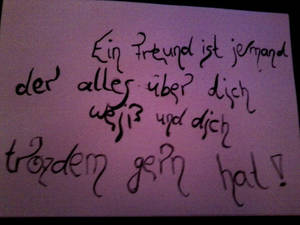 Ein Freund ist jemand
der alles über dich
weiß und dich
trozdem gern hat!